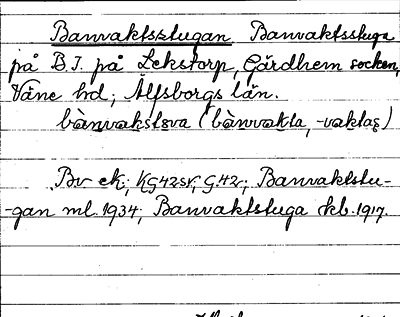 Banvaktsstugan Banvaktsstuga
på B.J. på Lekstorp, Gärdhem socken,
Väne hd; Älfsborgs län.
bànvakstəva (bànvakta, -vaktas)
Bv ek.; KG42SV, G.42; Banvaktstu-
-gan ml. 1934; Banvaktstuga ekb. 1917.